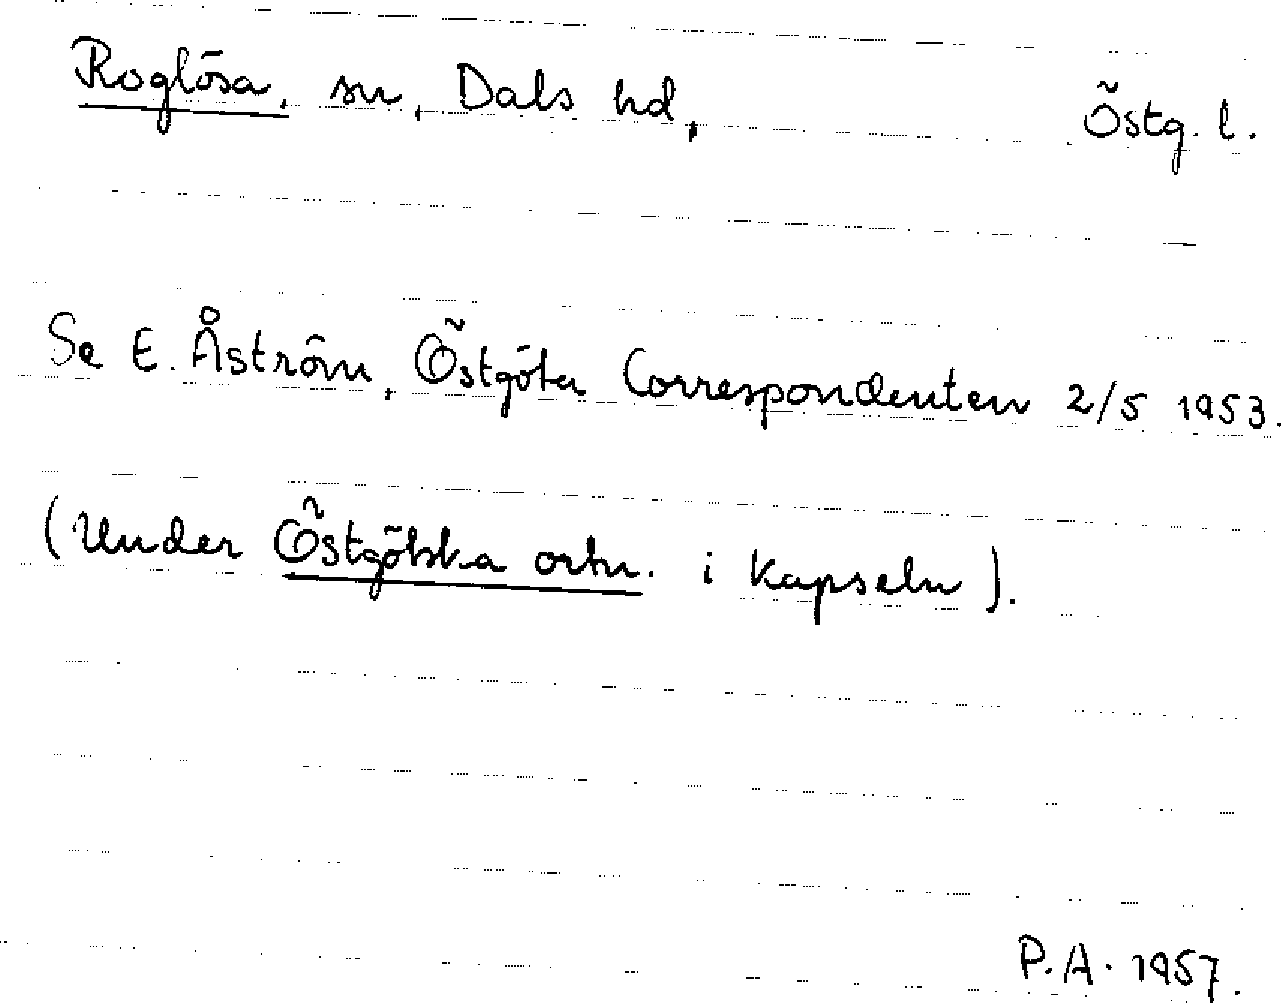 Roglösa, sn, Dals hd, Östg. l.
Se E. Åström, Östgöta Correspondenten 2/5 1953.
(Under Östgötska ortn. i kapseln).
P.A. 1957.